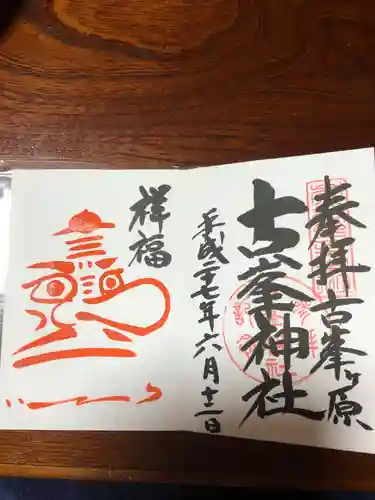 奉拝 古峯ヶ原
古峯神社
平成二七年六月十一日
祥福